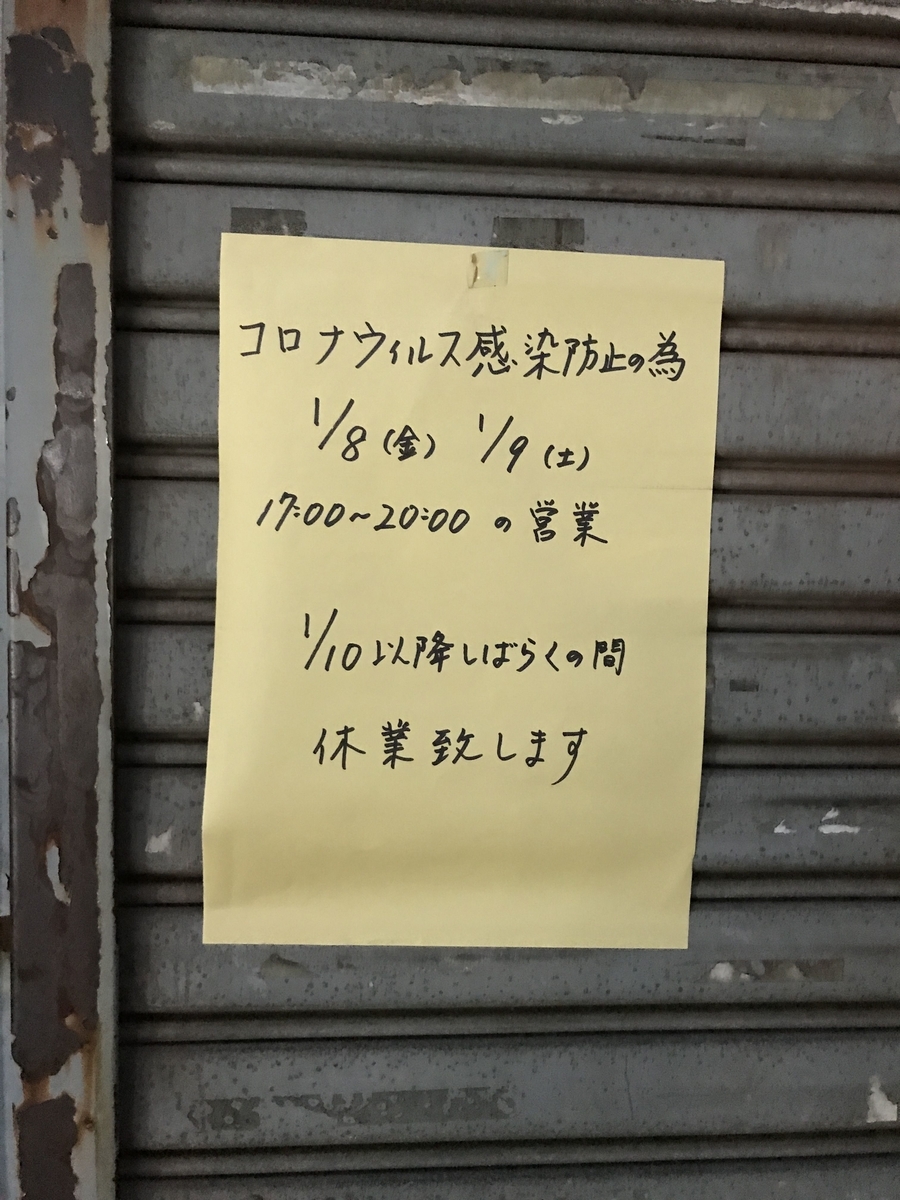 コロナウィルス感染防止の為
1/8(金) 1/9(土)
17:00~20:00の営業
1/10以降しばらくの間
休業致します